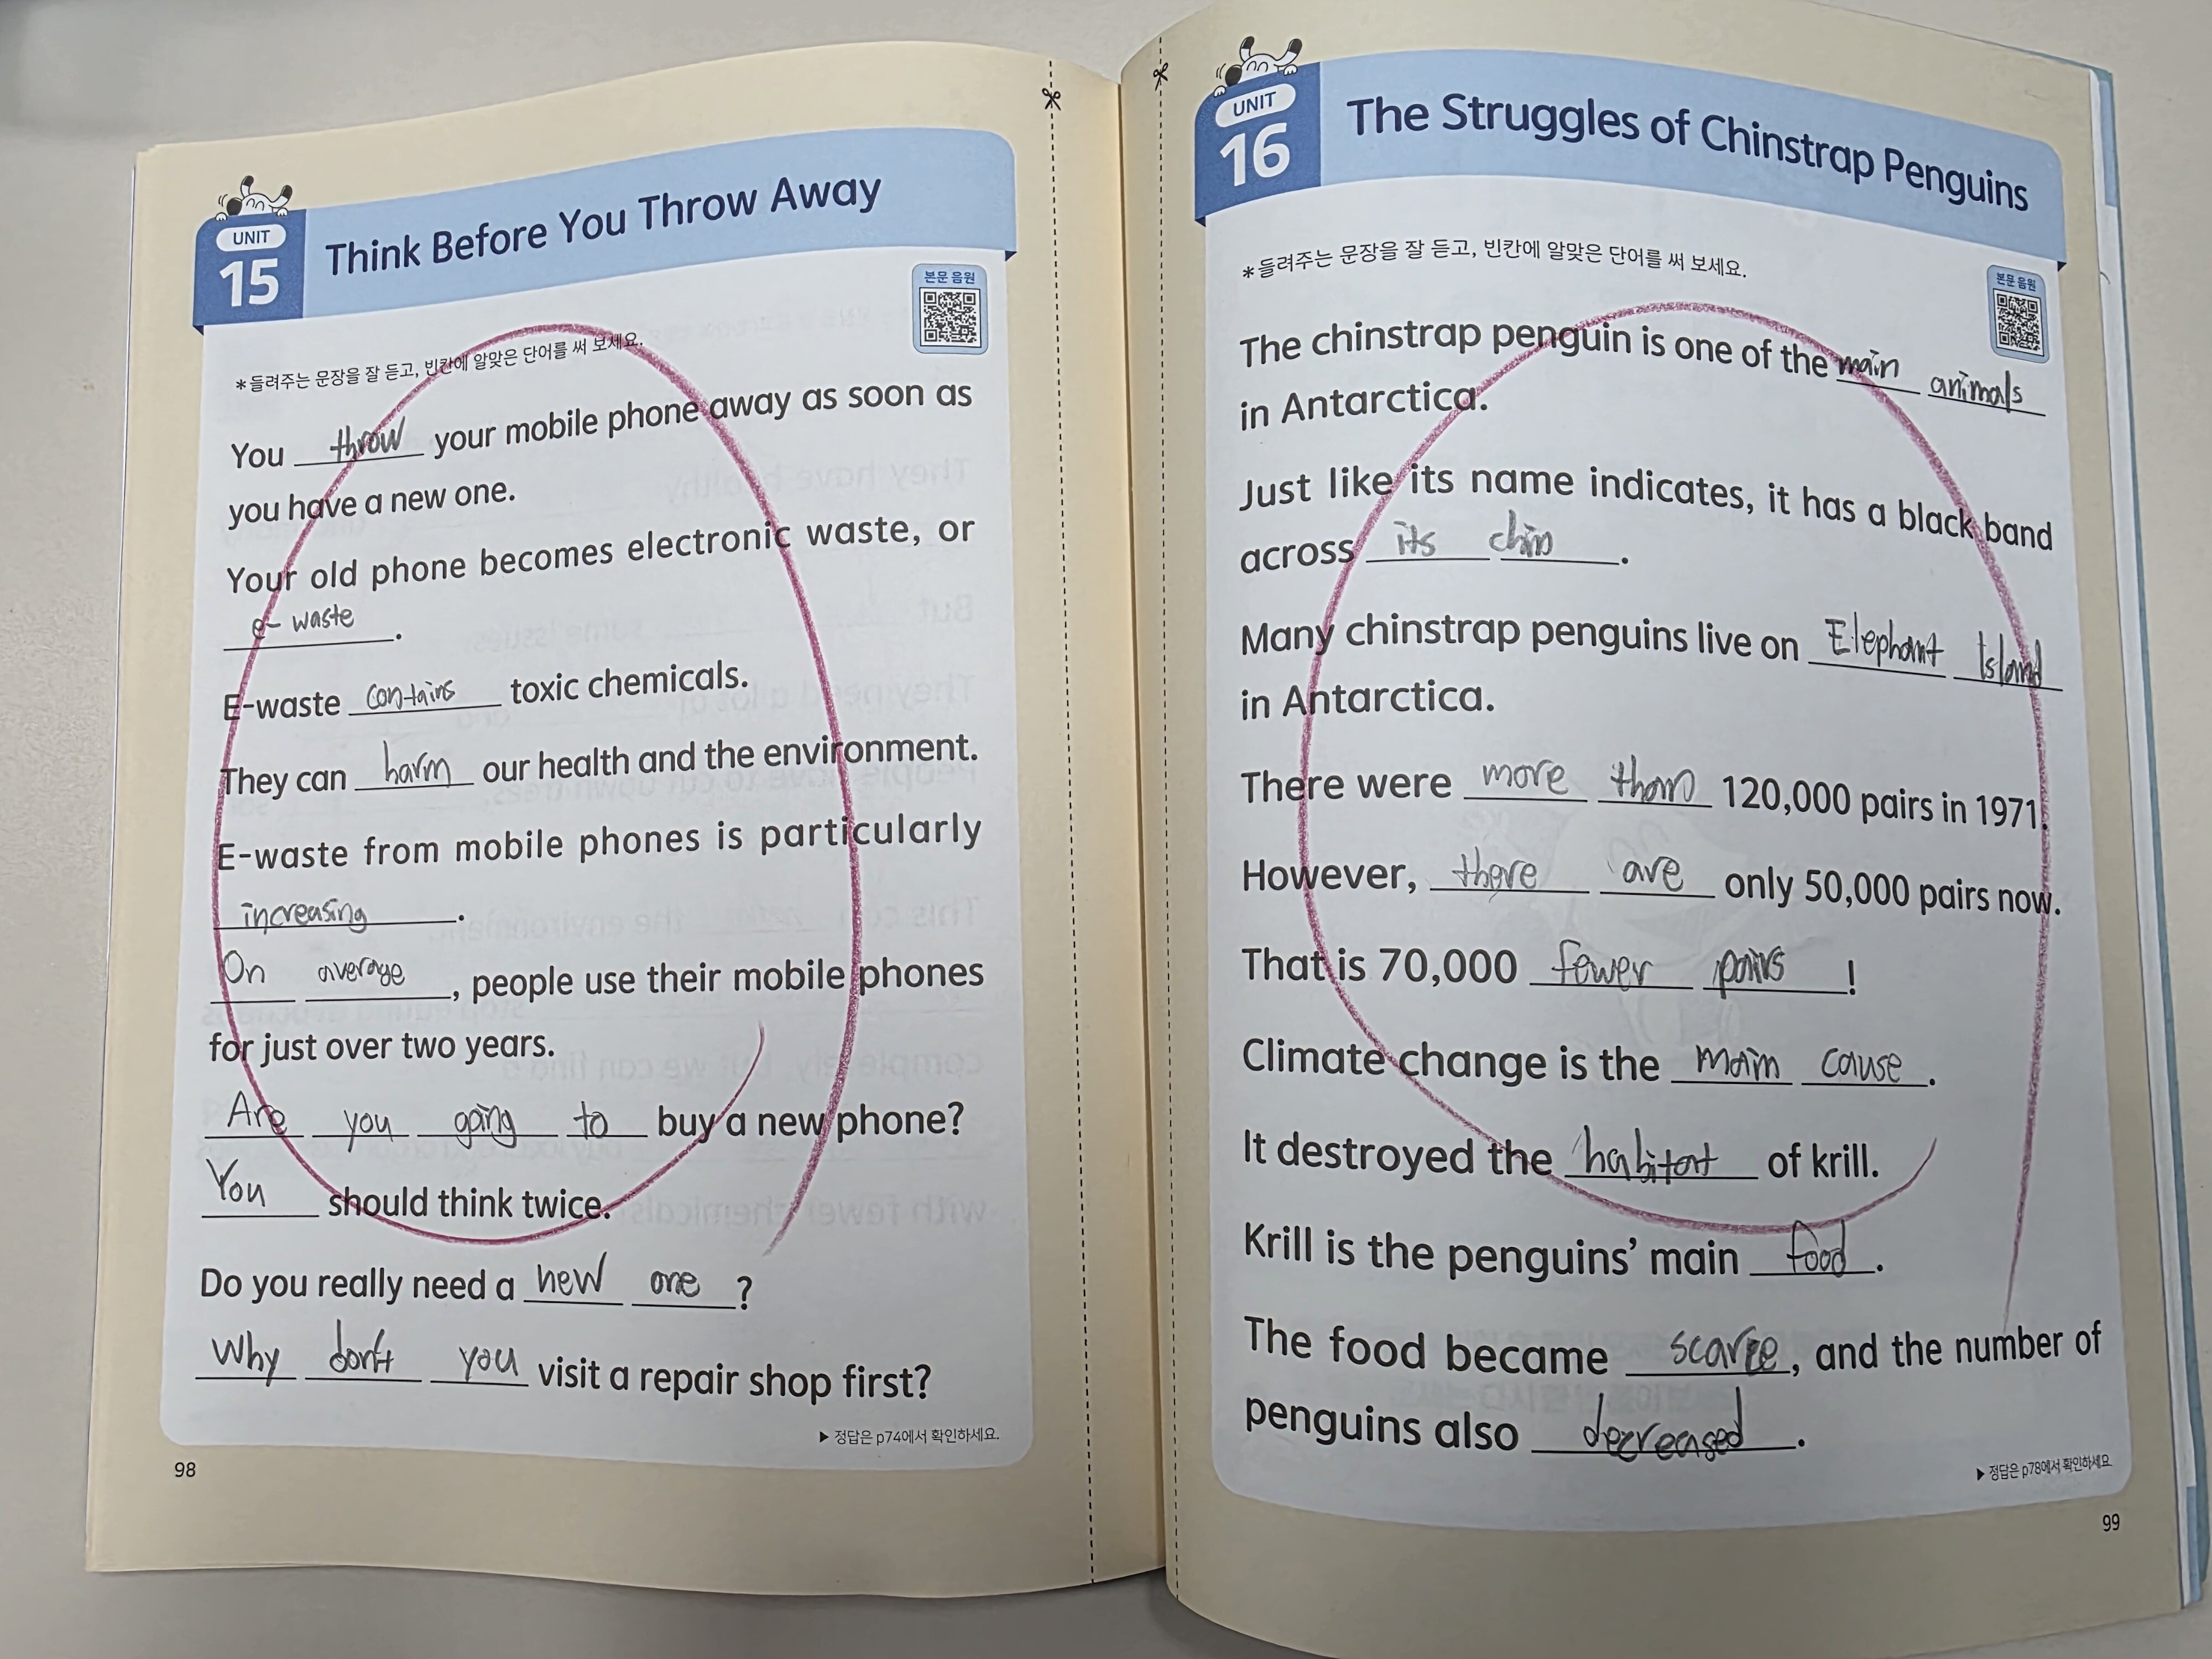 UNIT
15
Think Before You Throw Away
본문 음원
*들려주는 문장을 잘 듣고, 빈칸에 알맞은 단어를 써 보세요.
You throw your mobile phone away as soon as
you have a new one.
Your old phone becomes electronic waste, or
e-waste.
E-waste contains toxic chemicals.
They can harm our health and the environment.
E-waste from mobile phones is particularly
increasing.
On average, people use their mobile phones
for just over two years.
Are you going to buy a new phone?
You should think twice.
Do you really need a new one?
Why don't you visit a repair shop first?
▶ 정답은 p74에서 확인하세요.
98
UNIT
16
The Struggles of Chinstrap Penguins
*들려주는 문장을 잘 듣고, 빈칸에 알맞은 단어를 써 보세요.
본문 음원
The chinstrap penguin is one of the main animals
in Antarctica.
Just like its name indicates, it has a black band
across its chin.
Many chinstrap penguins live on Elephant Island
in Antarctica.
There were more than 120,000 pairs in 1971.
However, there are only 50,000 pairs now.
That is 70,000 fewer pairs!
Climate change is the main cause.
It destroyed the habitat of krill.
Krill is the penguins' main food.
The food became scarce, and the number of
penguins also decreased.
▶ 정답은 p78에서 확인하세요.
99